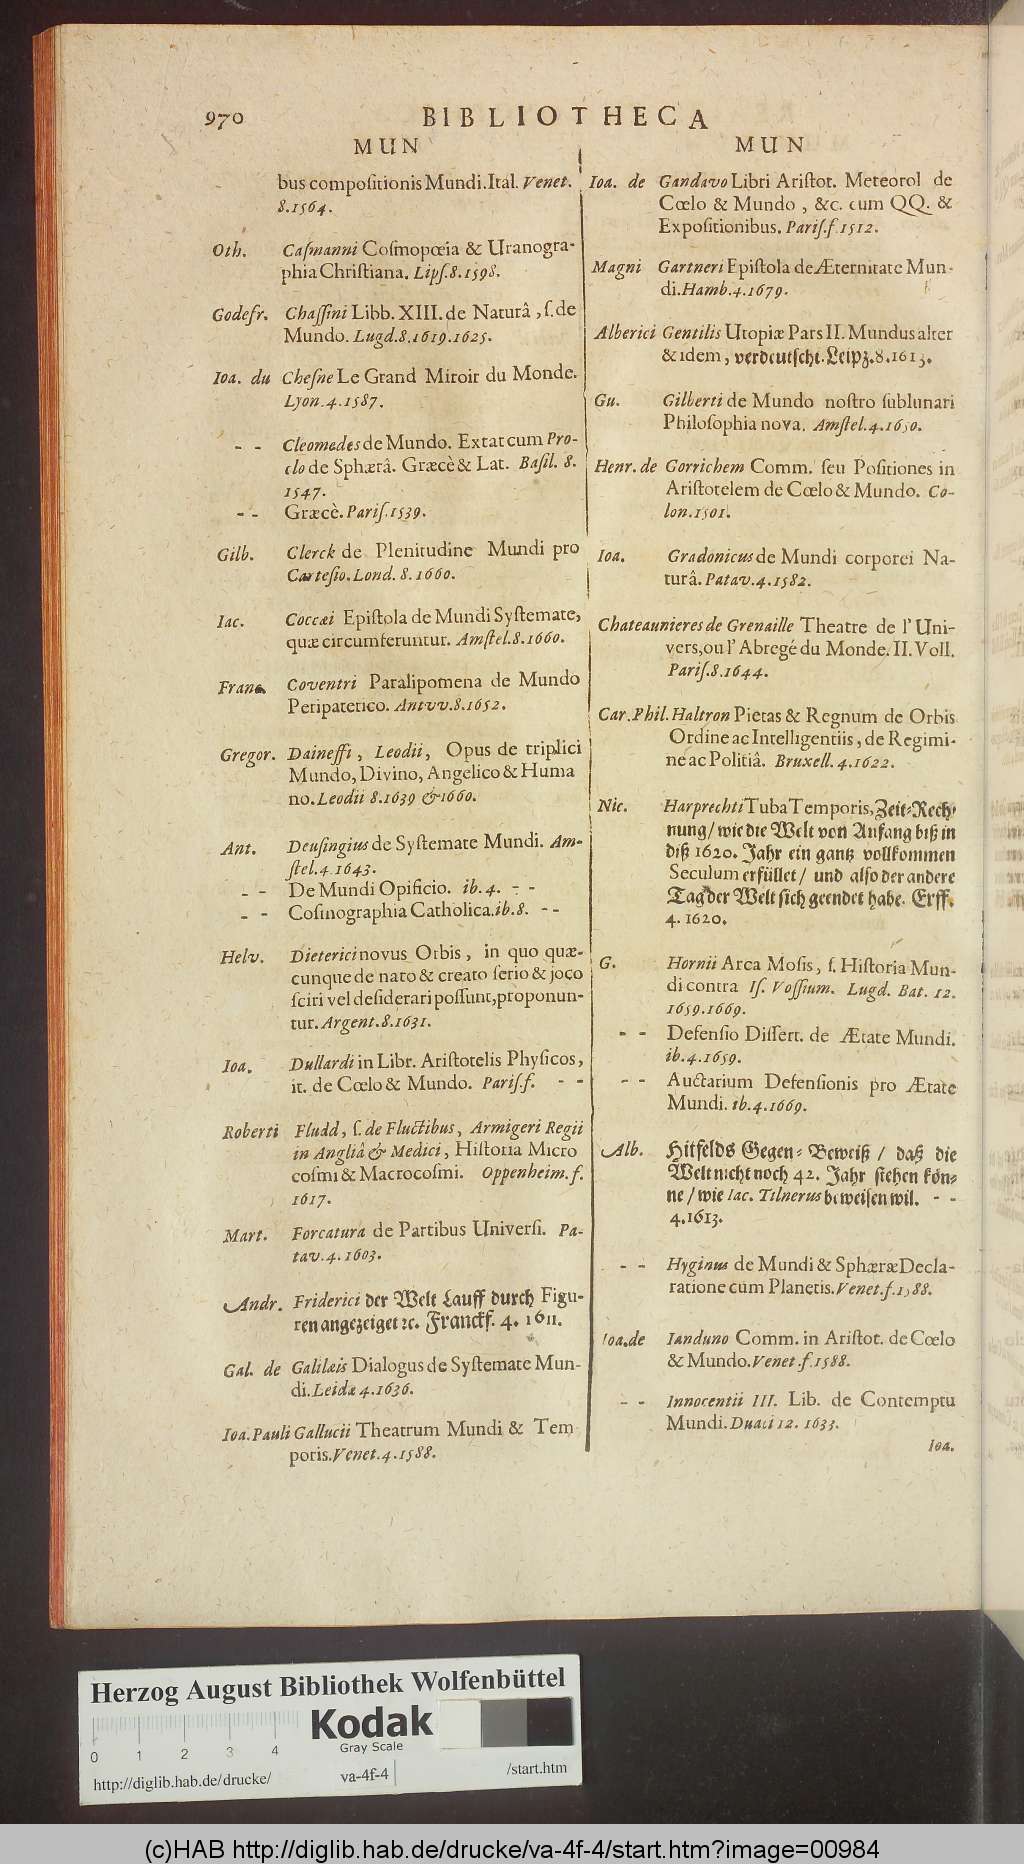 970 BIBLIOTHECA
MUN
bus compoſitionis Mundi. Ital. Venet.
8.1564.
Oth. Caſmanni Coſmopœia & Uranogra-
phia Chriſtiana. Lipſ.8.1598.
Godefr. Chaſſini Libb. XIII. de Naturâ, ſ. de
Mundo. Lugd.8.1619.1625.
Ioa. du Cheſne Le Grand Miroir du Monde.
Lyon.4.1587.
- - Cleomedes de Mundo. Extat cum Pro-
clo de Sphærâ. Græcè & Lat. Baſil. 8.
1547.
- - Græcè. Pariſ.1539.
Gilb. Clerck de Plenitudine Mundi pro
Carteſio. Lond. 8. 1660.
Iac. Coccæi Epiſtola de Mundi Syſtemate,
quæ circumferuntur. Amſtel.8.1660.
Franc. Coventri Paralipomena de Mundo
Peripatetico. Antvv.8.1652.
Gregor. Daineſſi, Leodii, Opus de triplici
Mundo, Divino, Angelico & Huma
no. Leodii 8.1639 & 1660.
Ant. Deuſingius de Syſtemate Mundi. Am-
ſtel.4.1643.
- - De Mundi Opificio. ib. 4. - -
- - Coſmographia Catholica. ib.8. - -
Helv. Dieterici novus Orbis, in quo quæ-
cunque de nato & creato ſerio & joco
ſciri vel deſiderari poſſunt, proponun-
tur. Argent.8.1631.
Ioa. Dullardi in Libr. Ariſtotelis Phyſicos,
it. de Cœlo & Mundo. Pariſ.f. - -
Roberti Fludd, ſ. de Fluctibus, Armigeri Regii
in Angliâ & Medici, Hiſtoria Micro
coſmi & Macrocoſmi. Oppenheim. f.
1617.
Mart. Forcatura de Partibus Univerſi. Pa-
tav.4.1603.
Andr. Friderici der Welt Lauff durch Figu-
ren angezeiget ꝛc. Franckf. 4. 1611.
Gal. de Galilæis Dialogus de Syſtemate Mun-
di. Leidæ 4.1636.
Ioa. Pauli Gallucii Theatrum Mundi & Tem
poris. Venet.4.1588.
MUN
Ioa. de Gandavo Libri Ariſtot. Meteorol de
Cœlo & Mundo, &c. cum QQ. &
Expoſitionibus. Pariſ.f.1512.
Magni Gartneri Epiſtola de Æternitate Mun-
di. Hamb.4.1679.
Alberici Gentilis Utopiæ Pars II. Mundus alter
& idem, verdeutſcht. Leipz.8.1613.
Gu. Gilberti de Mundo noſtro ſublunari
Philoſophia nova. Amſtel.4.1650.
Henr. de Gorrichem Comm. ſeu Poſitiones in
Ariſtotelem de Cœlo & Mundo. Co-
lon.1501.
Ioa. Gradonicus de Mundi corporei Na-
turâ. Patav.4.1582.
Chateaunieres de Grenaille Theatre de l'Uni-
vers, ou l'Abregé du Monde. II. Voll.
Pariſ.8.1644.
Car. Phil. Haltron Pietas & Regnum de Orbis
Ordine ac Intelligentiis, de Regimi-
ne ac Politiâ. Bruxell. 4.1622.
Nic. Harprechti Tuba Temporis, Zeit-Rech-
nung/ wie die Welt von Anfang biß in
diß 1620. Jahr ein gantz vollkommen
Seculum erfüllet/ und alſo der andere
Tag der Welt ſich geendet habe. Erff.
4. 1620.
G. Hornii Arca Moſis, ſ. Hiſtoria Mun-
di contra Iſ. Voſſium. Lugd. Bat. 12.
1659.1669.
- - Defenſio Diſſert. de Ætate Mundi.
ib.4.1659.
- - Auctarium Defenſionis pro Ætate
Mundi. ib.4.1669.
Alb. Hitfelds Gegen-Beweiß / daß die
Welt nicht noch 42. Jahr ſtehen kön-
ne / wie Iac. Tilnerus beweiſen wil. - -
4.1613.
- - Hyginus de Mundi & Sphæræ Decla-
ratione cum Planetis. Venet.f.1588.
Ioa.de Ianduno Comm. in Ariſtot. de Cœlo
& Mundo. Venet.f.1588.
- - Innocentii III. Lib. de Contemptu
Mundi. Duaci 12. 1633.
Ioa.
Herzog August Bibliothek Wolfenbüttel
Kodak
Gray Scale
0 1 2 3 4
http://diglib.hab.de/drucke/ va-4f-4 /start.htm
(c)HAB http://diglib.hab.de/drucke/va-4f-4/start.htm?image=00984